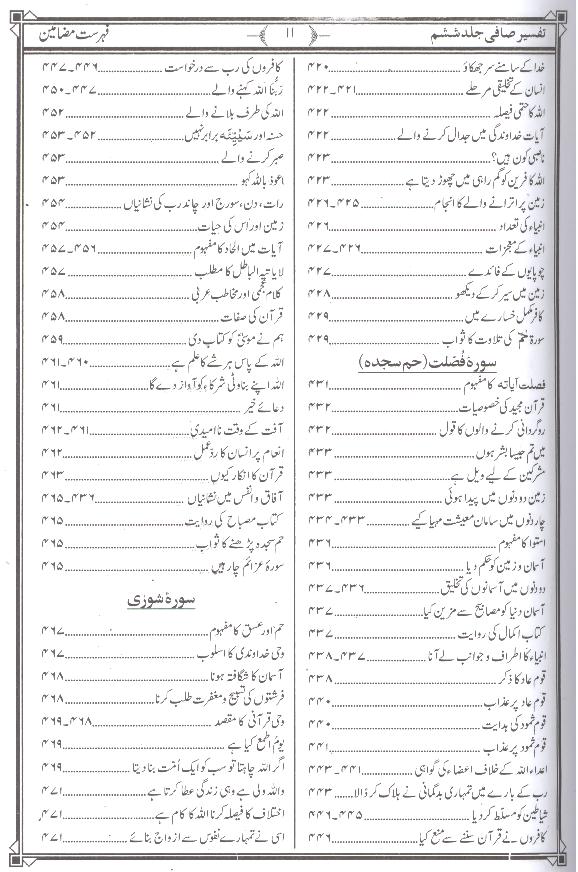 تفسیر صافی جلد ششم ۱۱ فہرست مضامین
خدا کے سامنے سر جھکاؤ ۴۲۰
انسان کے تخلیقی مرحلے ۴۲۱۔۴۲۲
اللہ کا حتمی فیصلہ ۴۲۲
آیات خداوندگی میں جدال کرنے والے ۴۲۲
ناصبی کون ہیں؟ ۴۲۳
اللہ کافرین کو گم راہی میں چھوڑ دیتا ہے ۴۲۳
زمین پر اترانے والے کا انجام ۴۲۵۔۴۲۶
انبیاء کی تعداد ۴۲۶
انبیاء کے معجزات ۴۲۶۔۴۲۷
چوپایوں کے فائدے ۴۲۷
زمین میں سیر کر کے دیکھو ۴۲۸
کافر مکمل خسارے میں ۴۲۹
سورۃ حٰمٓ کی تلاوت کا ثواب ۴۲۹
سورۃ فصّلت (حم سجدہ)
فصلت آیاتہ کا مفہوم ۴۳۱
قرآن مجید کی خصوصیات ۴۳۲
روگردانی کرنے والوں کا قول ۴۳۲
میں تم جیسا بشر ہوں ۴۳۳
مشرکین کے لیے ویل ہے ۴۳۳
زمین دو دنوں میں پیدا ہوئی ۴۳۳
چار دنوں میں سامان معیشت مہیا کیے ۴۳۳۔۴۳۴
استوا کا مفہوم ۴۳۶
آسمان و زمین کو حکم دیا ۴۳۶
دو دنوں میں آسمانوں کی تخلیق ۴۳۶۔۴۳۷
آسمان دنیا کو مصابیح سے مزین کیا ۴۳۷
کتاب اکمال کی روایت ۴۳۷
انبیاء کا اطراف و جوانب لے آنا ۴۳۷۔۴۳۸
قوم عاد کا ذکر ۴۳۸
قوم عاد پر عذاب ۴۴۰
قوم ثمود کی ہدایت ۴۴۰
قوم ثمود پر عذاب ۴۴۱
اعداء اللہ کے خلاف اعضاء کی گواہی ۴۴۱۔۴۴۳
رب کے بارے میں تمہاری بدگمانی نے ہلاک کر ڈالا ۴۴۳
شیاطین کو مسلط کر دیا ۴۴۵۔۴۴۶
کافروں نے قرآن سننے سے منع کیا ۴۴۶
کافروں کی رب سے درخواست ۴۴۶۔۴۴۷
رَبُّنَا اللہ کہنے والے ۴۴۷۔۴۵۰
اللہ کی طرف بلانے والے ۴۵۲
حسنہ اور سَيِّئَه برابر نہیں ۴۵۲۔۴۵۳
صبر کرنے والے ۴۵۳
اعوذ باللہ کہو ۴۵۳
رات، دن، سورج اور چاند رب کی نشانیاں ۴۵۴
زمین اور اس کی حیات ۴۵۴
آیات میں الحاد کا مفہوم ۴۵۶۔۴۵۷
لا یاتیہ الباطل کا مطلب ۴۵۷
کلام عجمی اور مخاطب عربی ۴۵۸
قرآن کی صفات ۴۵۸
ہم نے موسیٰؑ کو کتاب دی ۴۵۹
اللہ کے پاس ہر شے کا علم ہے ۴۶۰۔۴۶۱
اللہ اپنے بناوٹی شرکاء کو آواز دے گا ۴۶۱
دعائے خیر ۴۶۱
آفت کے وقت ناامیدی ۴۶۱۔۴۶۲
انعام پر انسان کا رد عمل ۴۶۲
قرآن کا انکار کیوں ۴۶۳
آفاق و انفس میں نشانیاں ۴۳۶۔۴۶۵
کتاب مصباح کی روایت ۴۶۵
حم سجدہ پڑھنے کا ثواب ۴۶۵
سورۂ عزائم چار ہیں ۴۶۵
سورۃ شورٰی
حم اور عسق کا مفہوم ۴۶۷
وحی خداوندی کا اسلوب ۴۶۷
آسمان کا شگافتہ ہونا ۴۶۸
فرشتوں کی تسبیح و مغفرت طلب کرنا ۴۶۸
وحی قرآنی کا مقصد ۴۶۸۔۴۶۹
یوم الجمع کیا ہے ۴۶۹
اگر اللہ چاہتا تو سب کو ایک اُمّت بنا دیتا ۴۶۹
واللہ ولی ہے وہی زندگی عطا کرتا ہے ۴۷۱
اختلاف کا فیصلہ کرنا اللہ کا کام ہے ۴۷۱
اسی نے تمہارے نفوس سے ازواج بنائے ۴۷۱